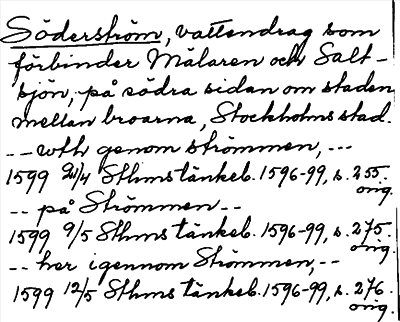 Söderström, vattendrag som
förbinder Mälaren och Salt-
sjön, på södra sidan om staden
mellan broarna, Stockholms stad.
-- wth genom strömmen, --
1599 21/4 Sthms tänkeb. 1596-99, s. 255.
orig.
-- på Strömmen --
1599 9/5 Sthms tänkeb. 1596-99, s. 275.
orig.
-- her igennom Strömmen, --
1599 12/5 Sthms tänkeb. 1596-99, s. 276.
orig.